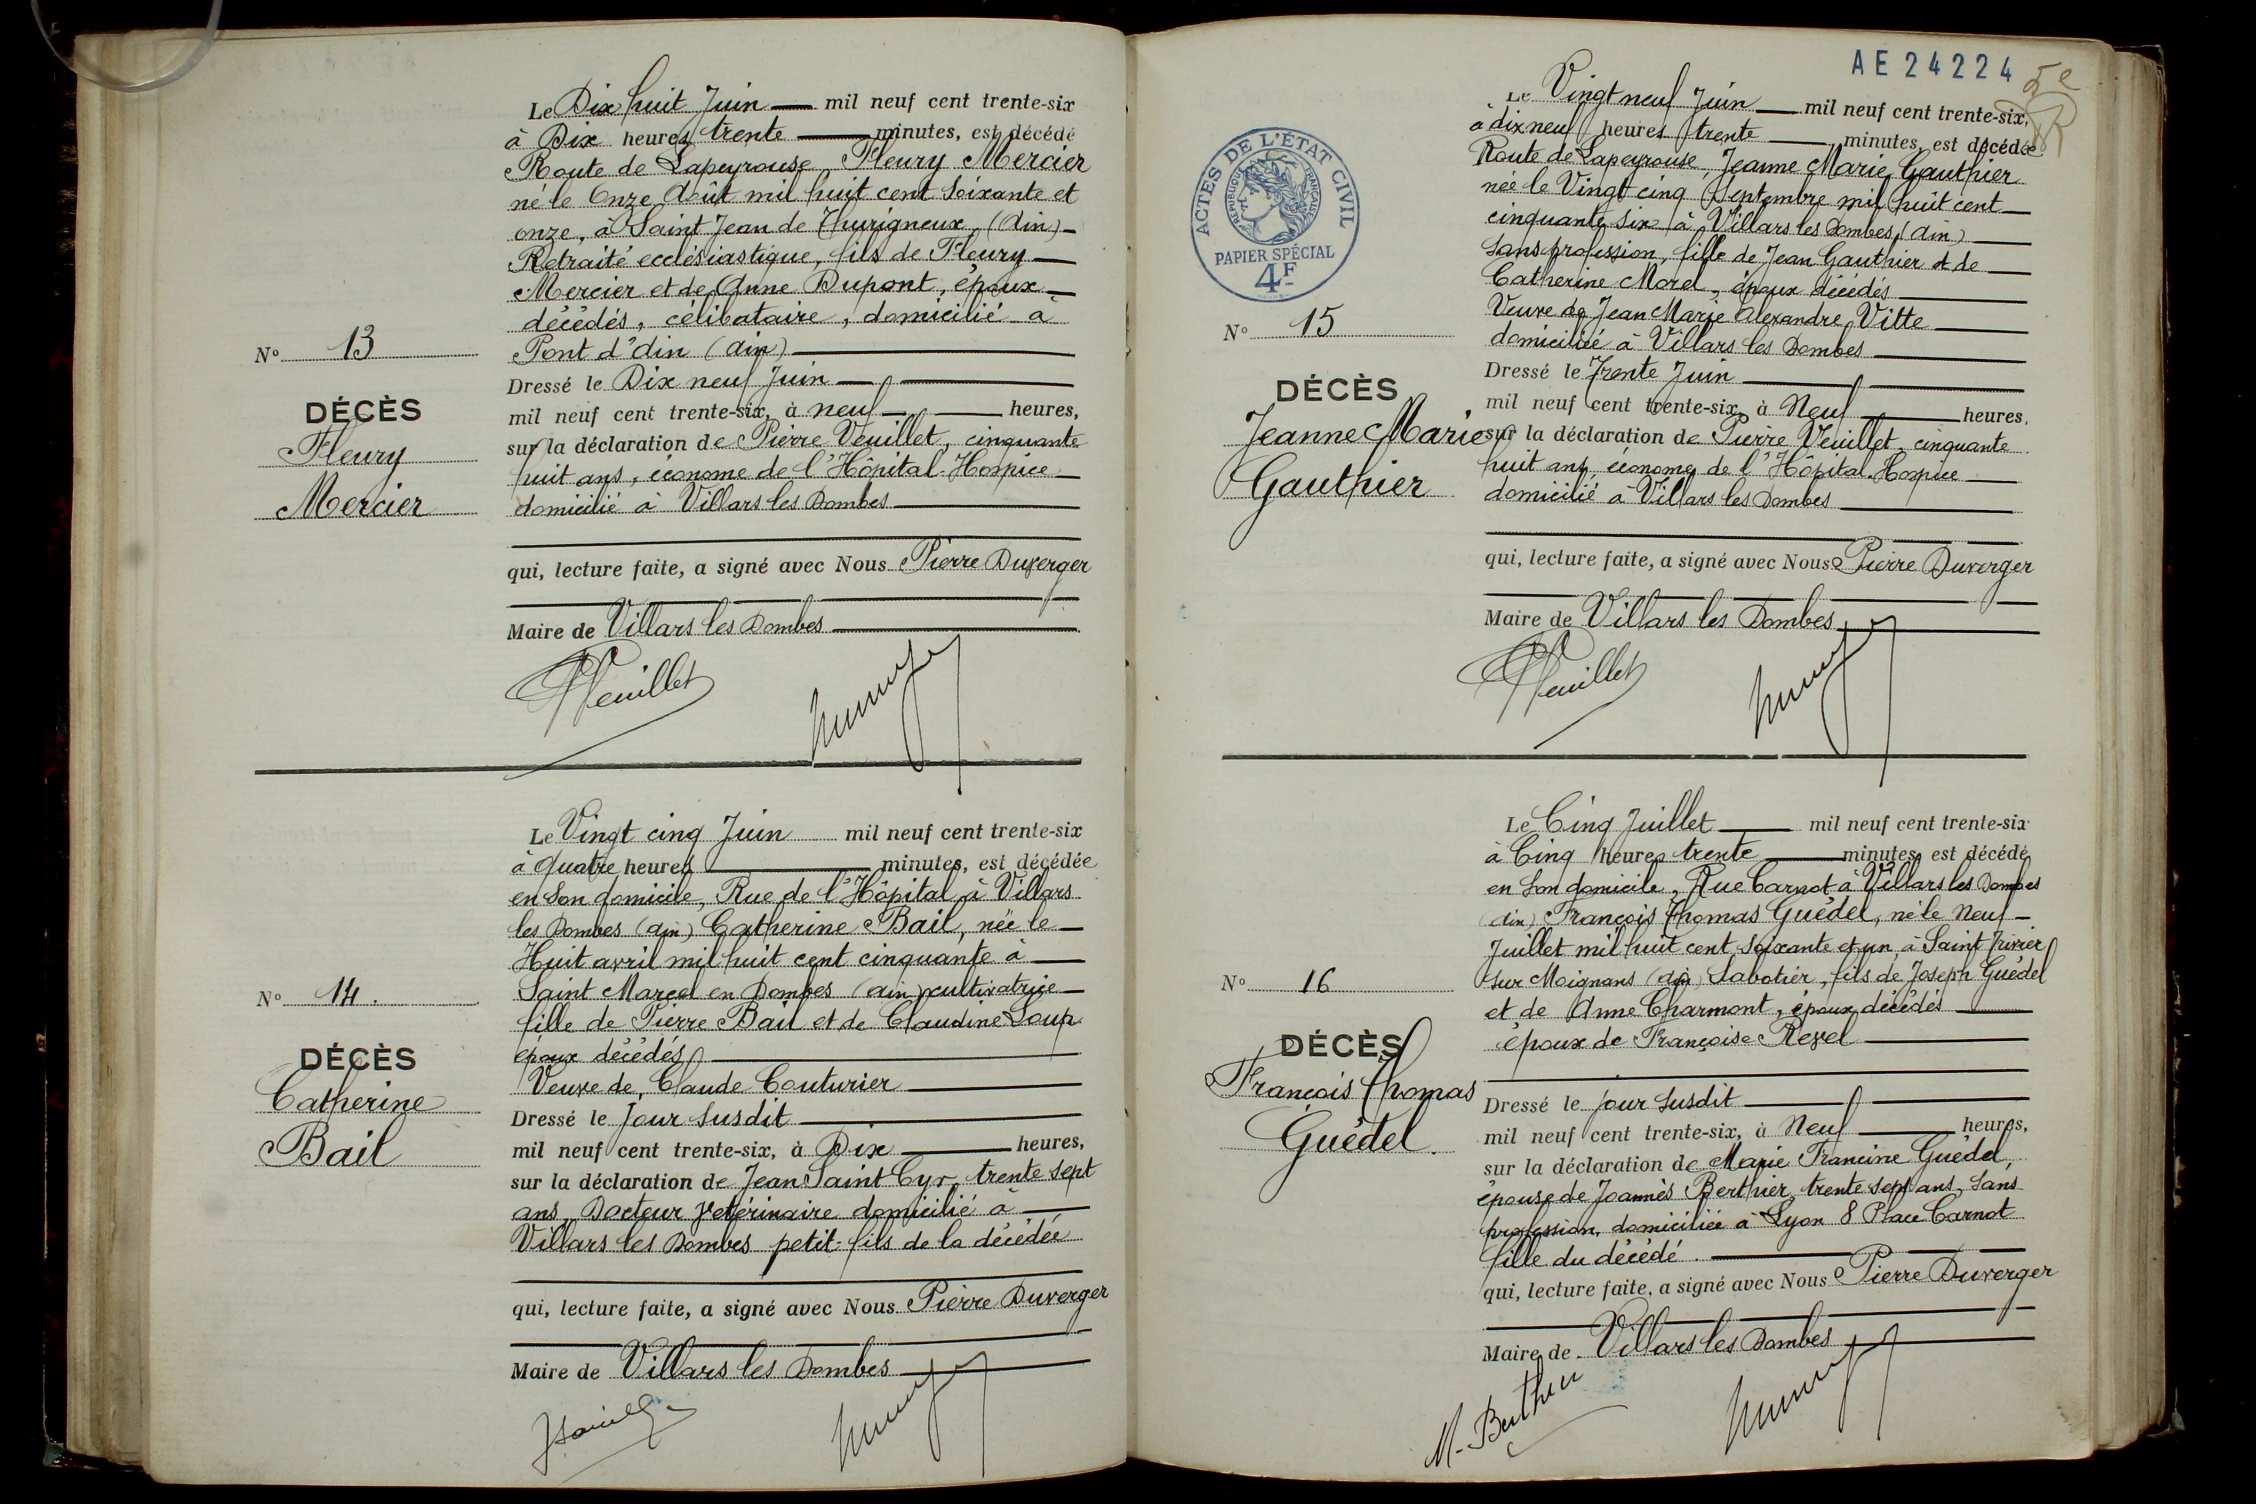 Le Dix huit Juin mil neuf cent trente-six
à Dix heures trente minutes, est décédé
Route de Lapeyrouse, Fleury Mercier
né le Onze Août mil huit cent soixante et
onze, à Saint Jean de Thurigneux (Ain)
Retraité ecclésiastique, fils de Fleury
Mercier et de Anne Dupont, époux
décédés, célibataire, domicilié à
Pont d'Ain (Ain)
Nº 13
DÉCÈS
Fleury
Mercier
Dressé le Dix neuf Juin
mil neuf cent trente-six, à neuf heures,
sur la déclaration de Pierre Veuillet, cinquante
huit ans, économe de l'Hôpital-Hospice
domicilié à Villars les Dombes
qui, lecture faite, a signé avec Nous Pierre Duverger
Maire de Villars les Dombes
PVeuillet
Le Vingt cinq Juin mil neuf cent trente-six
à quatre heures minutes, est décédée
en son domicile, Rue de l'Hôpital à Villars
les Dombes (Ain) Catherine Bail, née le
Huit avril mil huit cent cinquante à
Saint Marcel en Dombes (Ain) cultivatrice
fille de Pierre Bail et de Claudine Loup
époux décédés
Veuve de Claude Couturier
Nº 14.
DÉCÈS
Catherine
Bail
Dressé le Jour susdit
mil neuf cent trente-six, à Dix heures,
sur la déclaration de Jean Saint Cyr, trente sept
ans, Docteur Vétérinaire domicilié à
Villars les Dombes petit-fils de la décédée
qui, lecture faite, a signé avec Nous Pierre Duverger
Maire de Villars les Dombes
AE 24224
5e
ACTES DE L'ÉTAT CIVIL
RÉPUBLIQUE FRANÇAISE
PAPIER SPÉCIAL
4F
Le Vingt neuf Juin mil neuf cent trente-six,
à dix neuf heures trente minutes, est décédée
Route de Lapeyrouse, Jeanne Marie Gauthier
née le Vingt cinq Septembre mil huit cent
cinquante six à Villars les Dombes (Ain)
sans profession, fille de Jean Gauthier et de
Catherine Morel, époux décédés
Veuve de Jean Marie Alexandre Vitte
domiciliée à Villars les Dombes
Nº 15
DÉCÈS
Jeanne Marie
Gauthier
Dressé le Trente Juin
mil neuf cent trente-six, à Neuf heures,
sur la déclaration de Pierre Veuillet, cinquante
huit ans, économe de l'Hôpital-Hospice
domicilié à Villars les Dombes
qui, lecture faite, a signé avec Nous Pierre Duverger
Maire de Villars les Dombes
PVeuillet
Le Cinq Juillet mil neuf cent trente-six
à Cinq heures trente minutes, est décédé
en son domicile, Rue Carnot à Villars les Dombes
(Ain) François Thomas Guédel, né le Neuf
Juillet mil huit cent soixante et un, à Saint Trivier
sur Moignans (Ain) Sabotier, fils de Joseph Guédel
et de Anne Charmont, époux décédés
époux de Françoise Revel
Nº 16
DÉCÈS
François Thomas
Guédel.
Dressé le jour susdit
mil neuf cent trente-six, à Neuf heures,
sur la déclaration de Marie Francine Guédel,
épouse de Joannès Berthier, trente sept ans, sans
profession, domiciliée à Lyon 8 Place Carnot
fille du décédé.
qui, lecture faite, a signé avec Nous Pierre Duverger
Maire de Villars les Dombes
M. Berthier